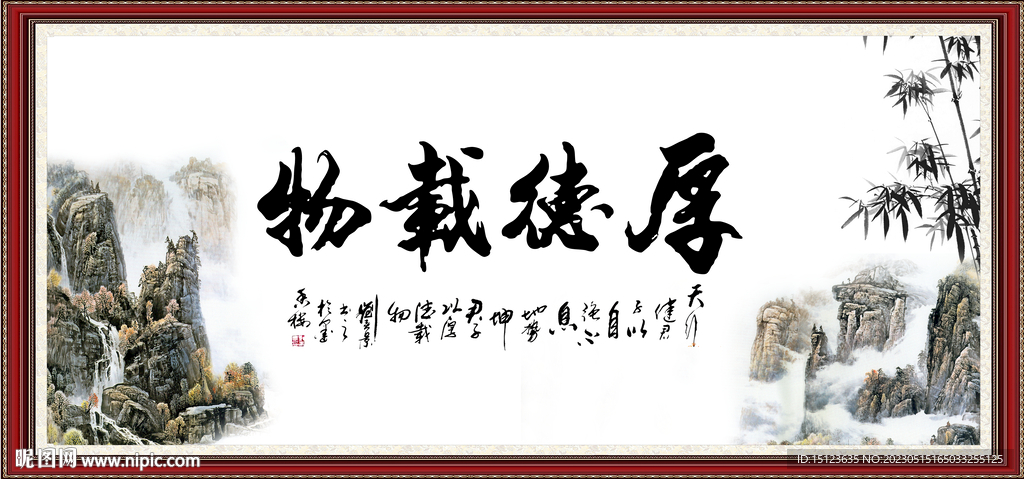 厚德载物
天行健君子以自强不息地势坤君子以厚德载物
昵图网 www.nipic.com
ID:15123635 NO:20230515165033255125